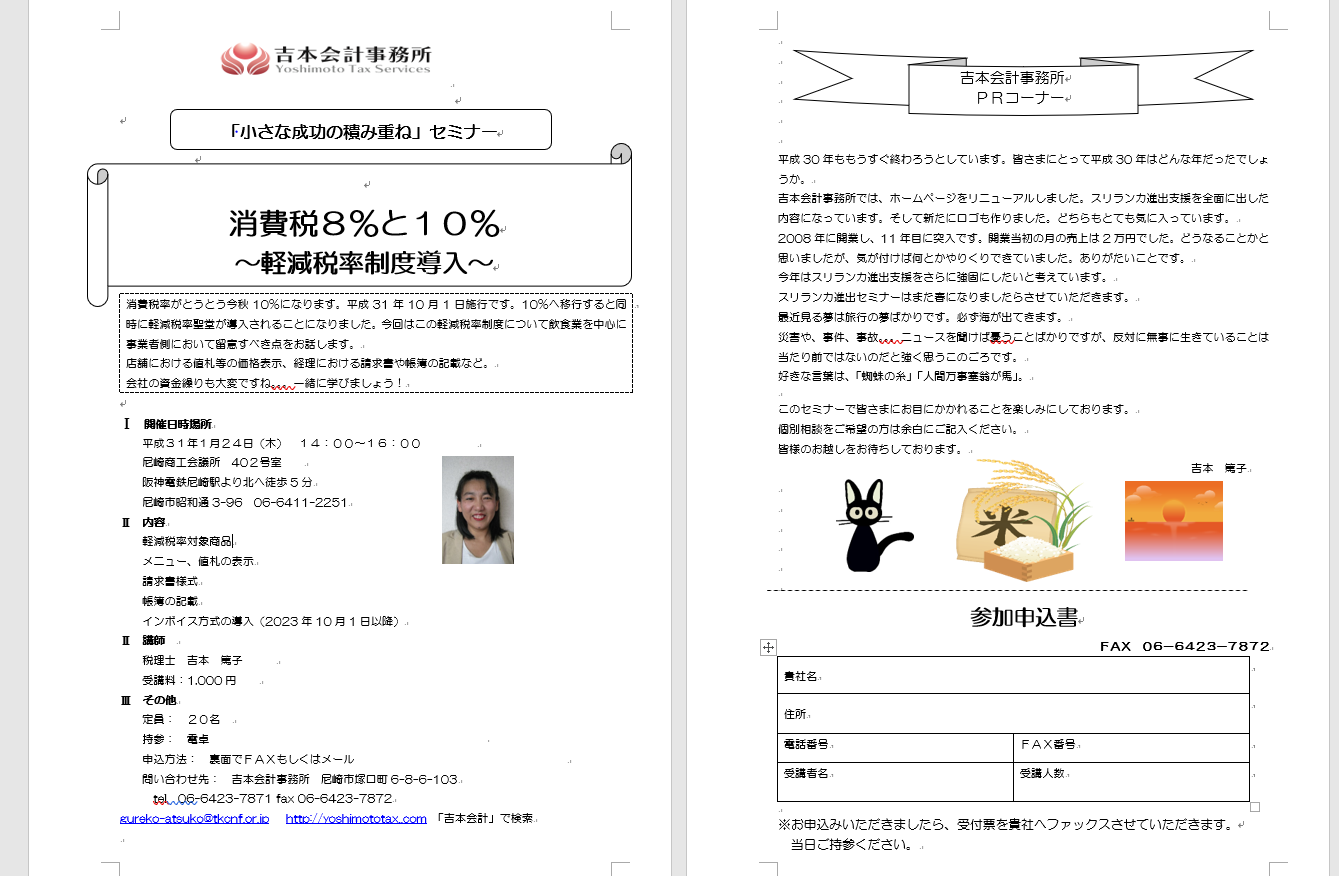 吉本会計事務所
Yoshimoto Tax Services
「小さな成功の積み重ね」セミナー
消費税８％と１０％
～軽減税率制度導入～
消費税率がとうとう今秋 10%になります。平成 31 年 10 月 1 日施行です。10%へ移行すると同
時に軽減税率聖堂が導入されることになりました。今回はこの軽減税率制度について飲食業を中心に
事業者側において留意すべき点をお話します。
店舗における値札等の価格表示、経理における請求書や帳簿の記載など。
会社の資金繰りも大変ですね。。。一緒に学びましょう！
Ⅰ　開催日時場所
平成３１年１月２４日（木）　１４：００～１６：００
尼崎商工会議所　４０２号室
阪神電鉄尼崎駅より北へ徒歩５分
尼崎市昭和通 3-96　06-6411-2251
Ⅱ　内容
軽減税率対象商品
メニュー、値札の表示
請求書様式
帳簿の記載
インボイス方式の導入（2023 年 10 月 1 日以降）
Ⅱ　講師
税理士　吉本　篤子
受講料：1,000 円
Ⅲ　その他
定員：　２０名
持参：　電卓
申込方法：　裏面でＦＡＸもしくはメール
問い合わせ先：　吉本会計事務所　尼崎市塚口町 6-8-6-103
tel　06-6423-7871 fax 06-6423-7872
gureko-atsuko@tkcnf.or.jp　http://yoshimototax.com　「吉本会計」で検索
吉本会計事務所
ＰＲコーナー
平成 30 年ももうすぐ終わろうとしています。皆さまにとって平成 30 年はどんな年だったでしょ
うか。
吉本会計事務所では、ホームページをリニューアルしました。スリランカ進出支援を全面に出した
内容になっています。そして新たにロゴも作りました。どちらもとても気に入っています。
2008 年に開業し、11 年目に突入です。開業当初の月の売上は 2 万円でした。どうなることかと
思いましたが、気が付けば何とかやりくりできていました。ありがたいことです。
今年はスリランカ進出支援をさらに強固にしたいと考えています。
スリランカ進出セミナーはまた春になりましたらさせていただきます。
最近見る夢は旅行の夢ばかりです。必ず海が出てきます。
災害や、事件、事故。。。ニュースを聞けば憂うことばかりですが、反対に無事に生きていることは
当たり前ではないのだと強く思うこのごろです。
好きな言葉は、「蜘蛛の糸」「人間万事塞翁が馬」。
このセミナーで皆さまにお目にかかれることを楽しみにしております。
個別相談をご希望の方は余白にご記入ください。
皆様のお越しをお待ちしております。
吉本　篤子
米
参加申込書
FAX　06－6423－7872
貴社名
住所
電話番号
ＦＡＸ番号
受講者名
受講人数
※お申込みいただきましたら、受付票を貴社へファックスさせていただきます。
当日ご持参ください。